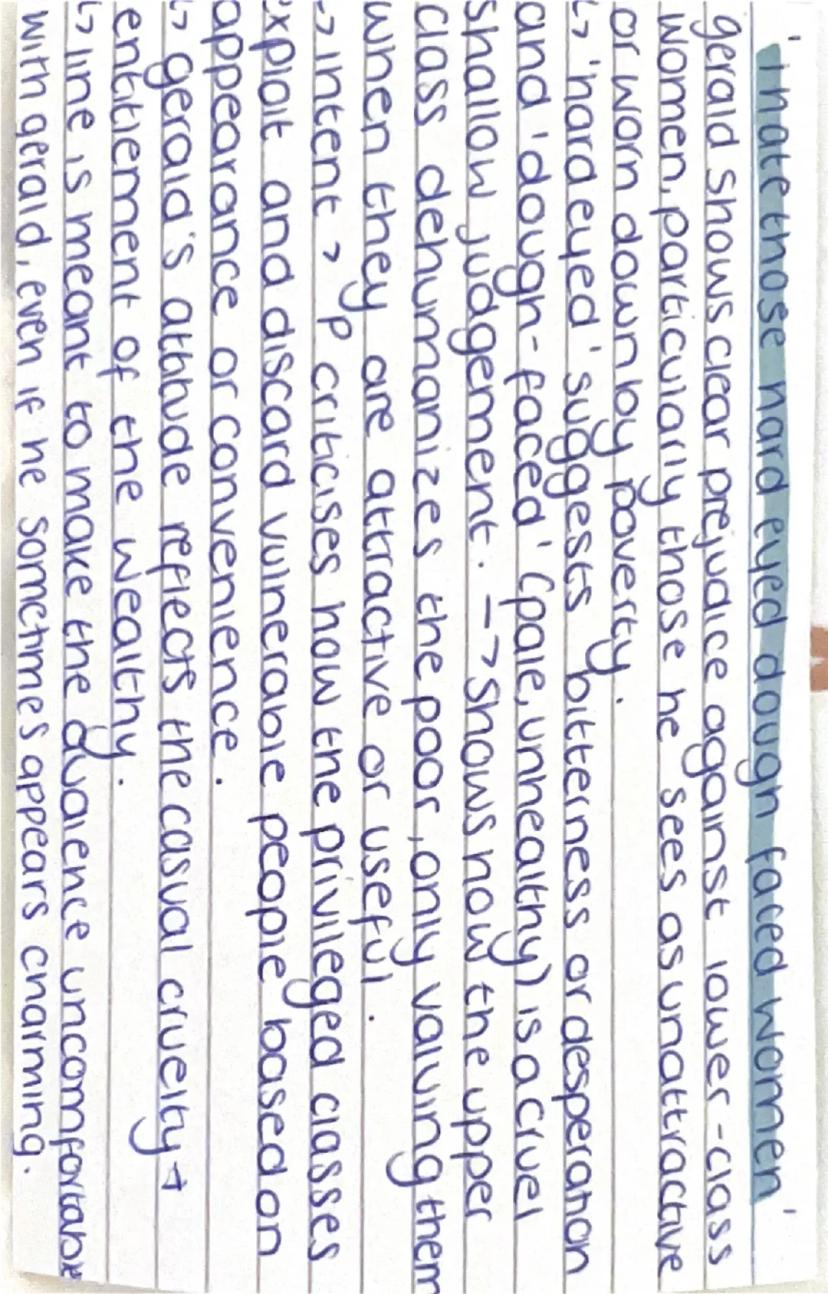 'i hate those hard eyed dough faced women'
gerald shows clear prejudice against lower-class
women, particularly those he sees as unattractive
or worn down by poverty.
↳ 'hard eyed' suggests bitterness or desperation
and 'dough-faced' (pale, unhealthy) is a cruel
shallow judgement. --> shows how the upper
class dehumanizes the poor, only valuing them
when they are attractive or useful.
-> intent > p criticises how the privileged classes
exploit and discard vulnerable people based on
appearance or convenience.
↳ gerald's attitude reflects the casual cruelty +
entitlement of the wealthy.
↳ line is meant to make the audience uncomfortable
with gerald, even if he sometimes appears charming.